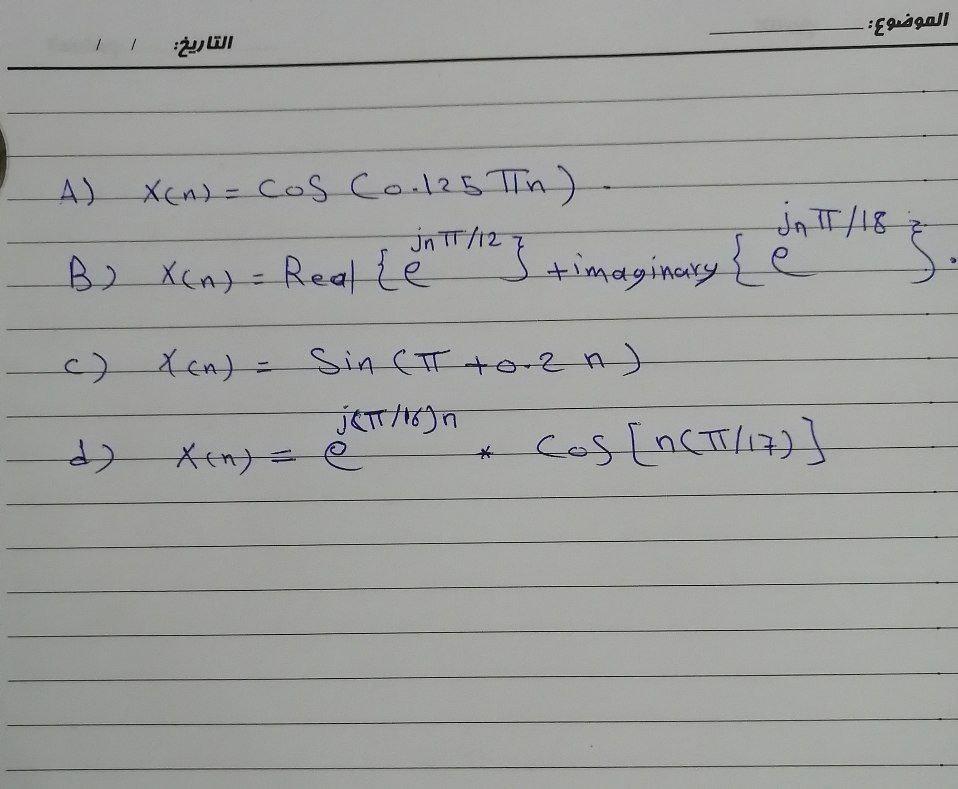 الموضوع:
التاريخ: / /
A) x(n) = Cos (0.125 πn).
B) x(n) = Real {e^jnπ/12} + imaginary {e^jnπ/18}.
c) x(n) = Sin (π + 0.2 n)
d) x(n) = e^j(π/16)n * Cos [n(π/17)]